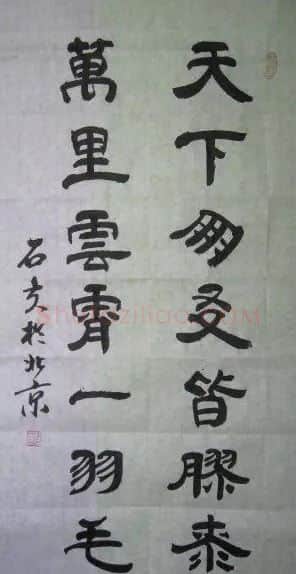 天下朋友皆膠桼
萬里雲霄一羽毛
石方於北京